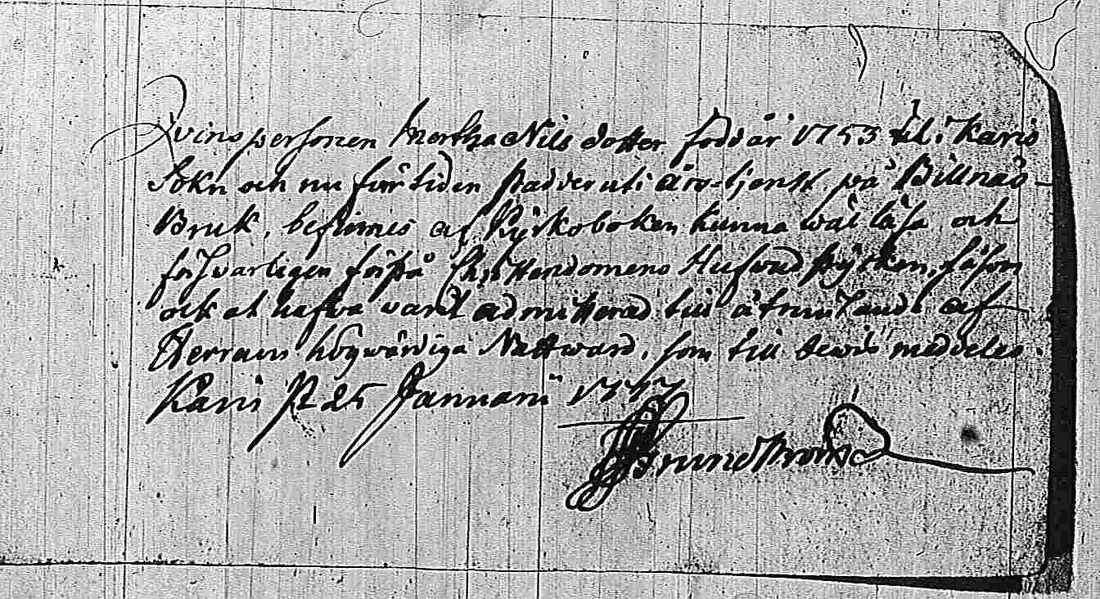 Qvinspersonen Mertha Nils dotter född år 1753 uti Karis
Sokn och nu för tiden stadd uti års-tjenst på Billnäs-
Bruk, befinnes af Kyrkoboken kunna wäl läsa och
försvarligen förstå Christendomens Hufvud stycken, såsom
ock at hafva varit admitterad till åtniutande af
Herrans högwärdiga Nattward, som till bewis meddeles.
Karis P 25 Januarii